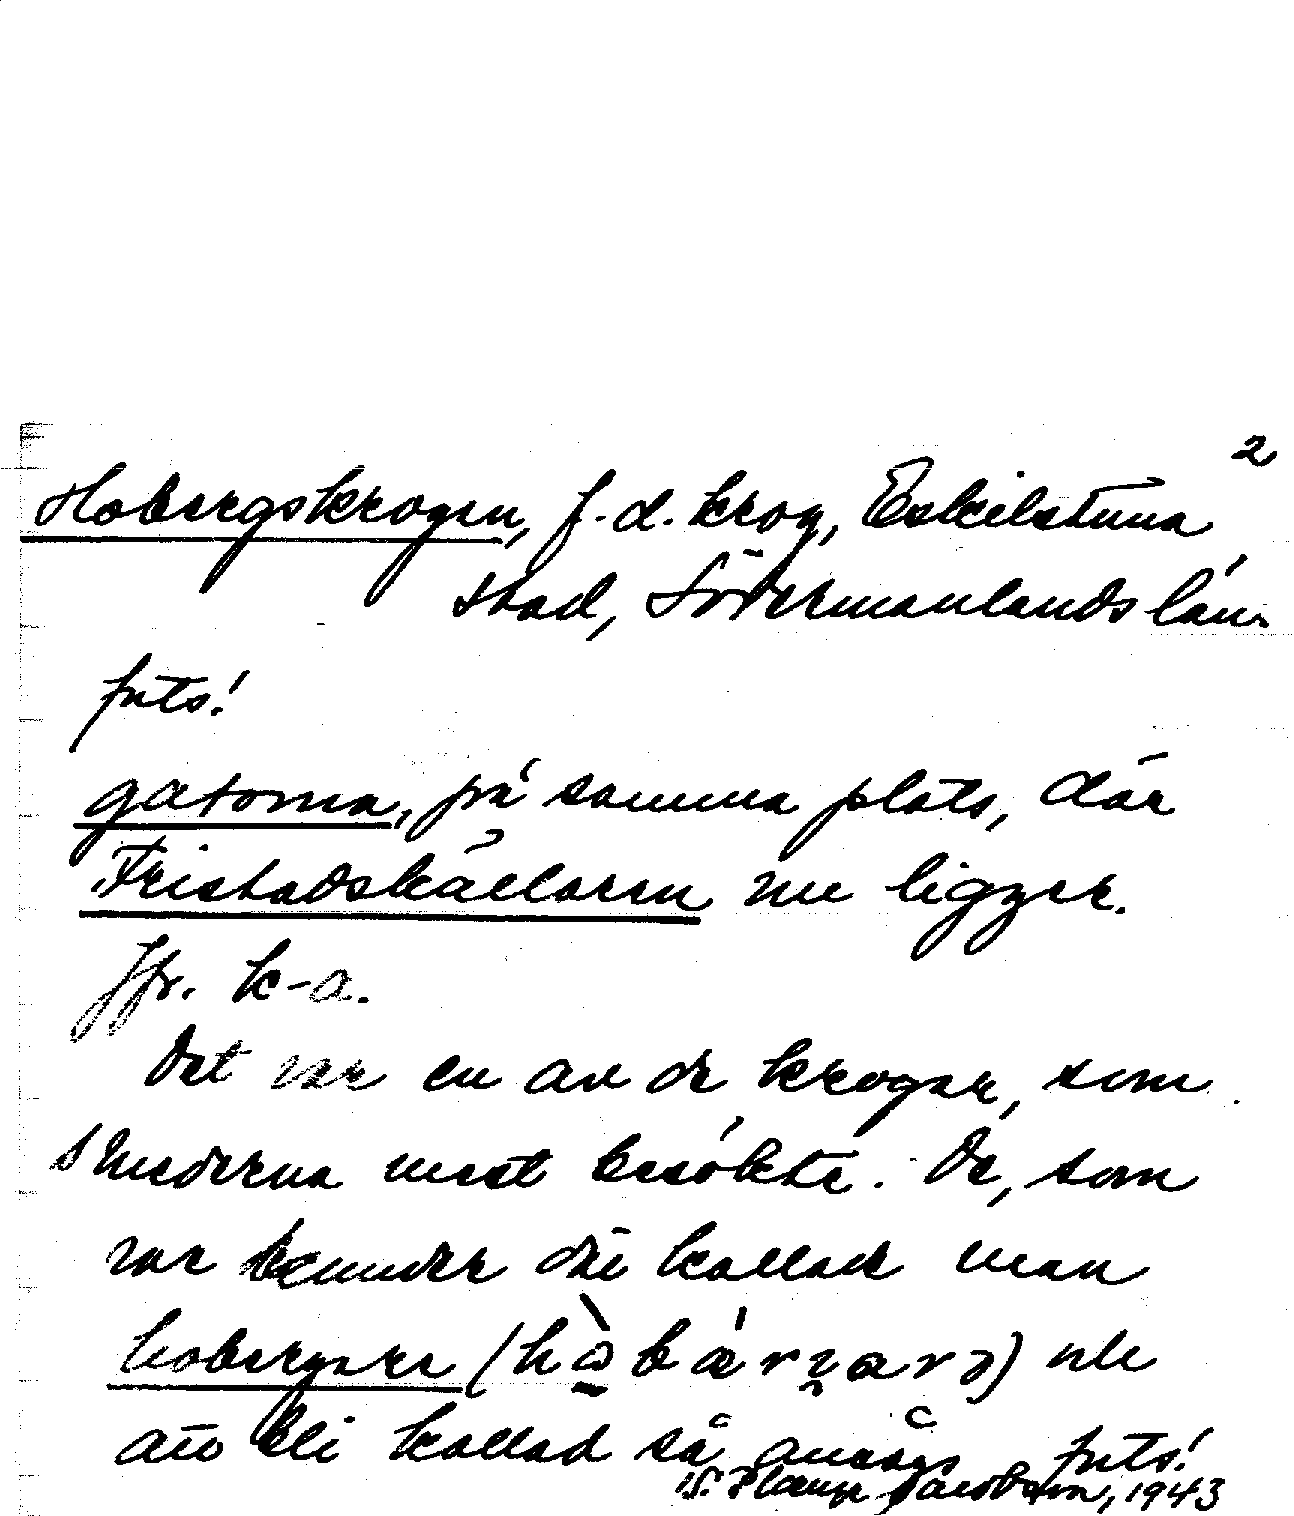 2
Hobergskrogen, f.d. krog, Eskilstuna
stad, Södermanlands län.
forts!
gatorna, på samma plats, där
Fristadskällaren nu ligger.
Jfr. k-a.
Det var en av de krogar, som
smederna mest besökte. De, som
var kunder där kallade man
hobergare och
att bli kallad så ansågs forts!
S. Jacobson, 1943